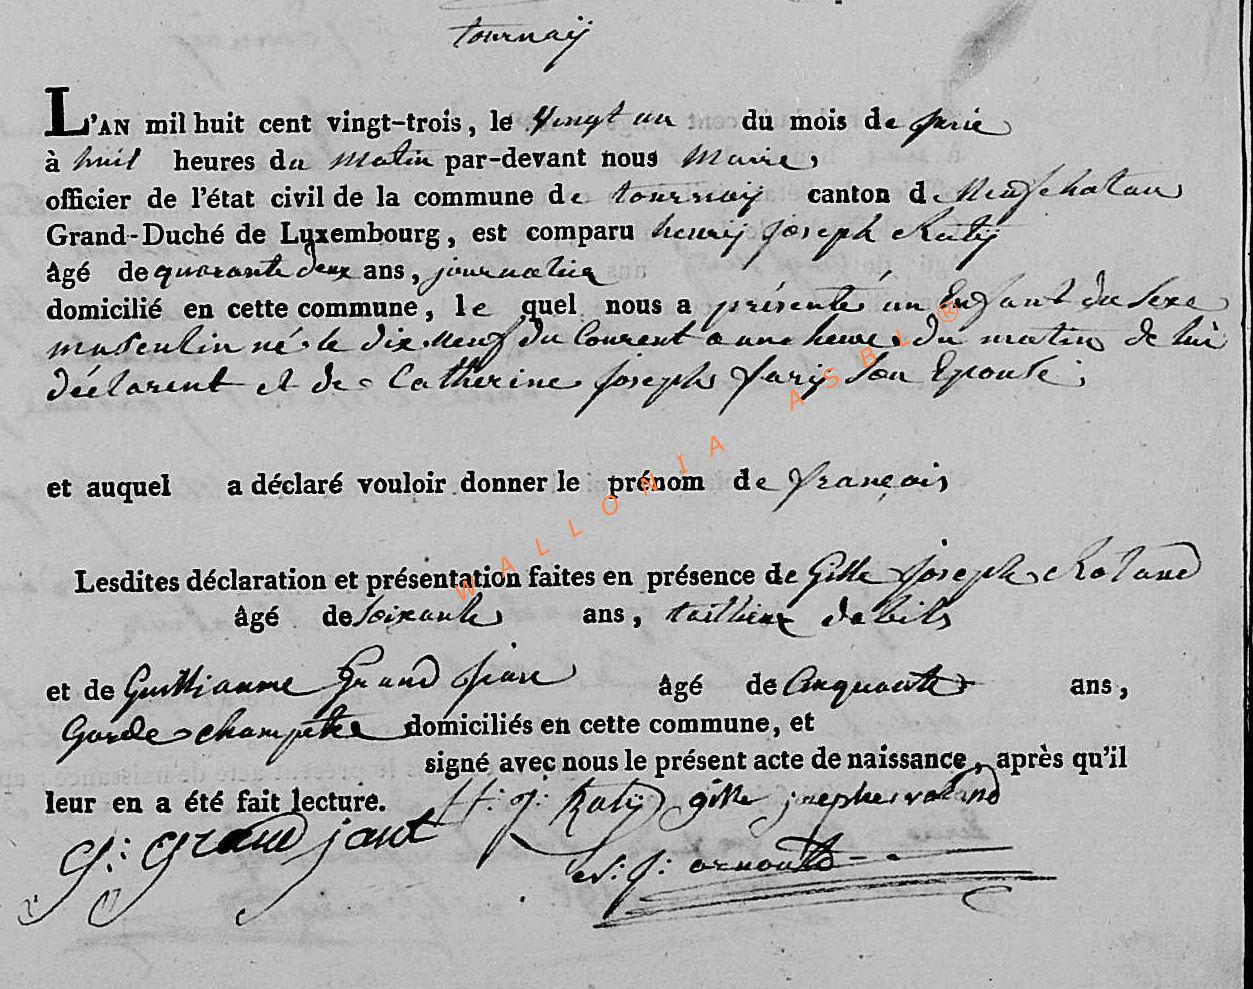 tournaÿ
L'AN mil huit cent vingt-trois, le vingt un du mois de
à huit heures du matin par-devant nous Maire,
officier de l'état civil de la commune de tournaÿ canton de Neufchatau
Grand-Duché de Luxembourg, est comparu henrÿ joseph Ratÿ
âgé de quarante deux ans, journalier
domicilié en cette commune, le quel nous a présenté un Enfant du Sexe
masculin né le dix Neuf du Courent a une heure du matin de lui
déclarent et de Catherine joseph son Epouse;
et auquel a déclaré vouloir donner le prénom de françois
Lesdites déclaration et présentation faites en présence de Gille joseph Roland
âgé de Soixante ans, taillieur dabits
et de Guilliaume Grand âgé de Cinquante ans,
Garde champetre domiciliés en cette commune, et
signé avec nous le présent acte de naissance, après qu'il
leur en a été fait lecture. H: j: Ratÿ gille josephe roland
G: Grand jant
j: arnould
WALLONIA ASBL ®